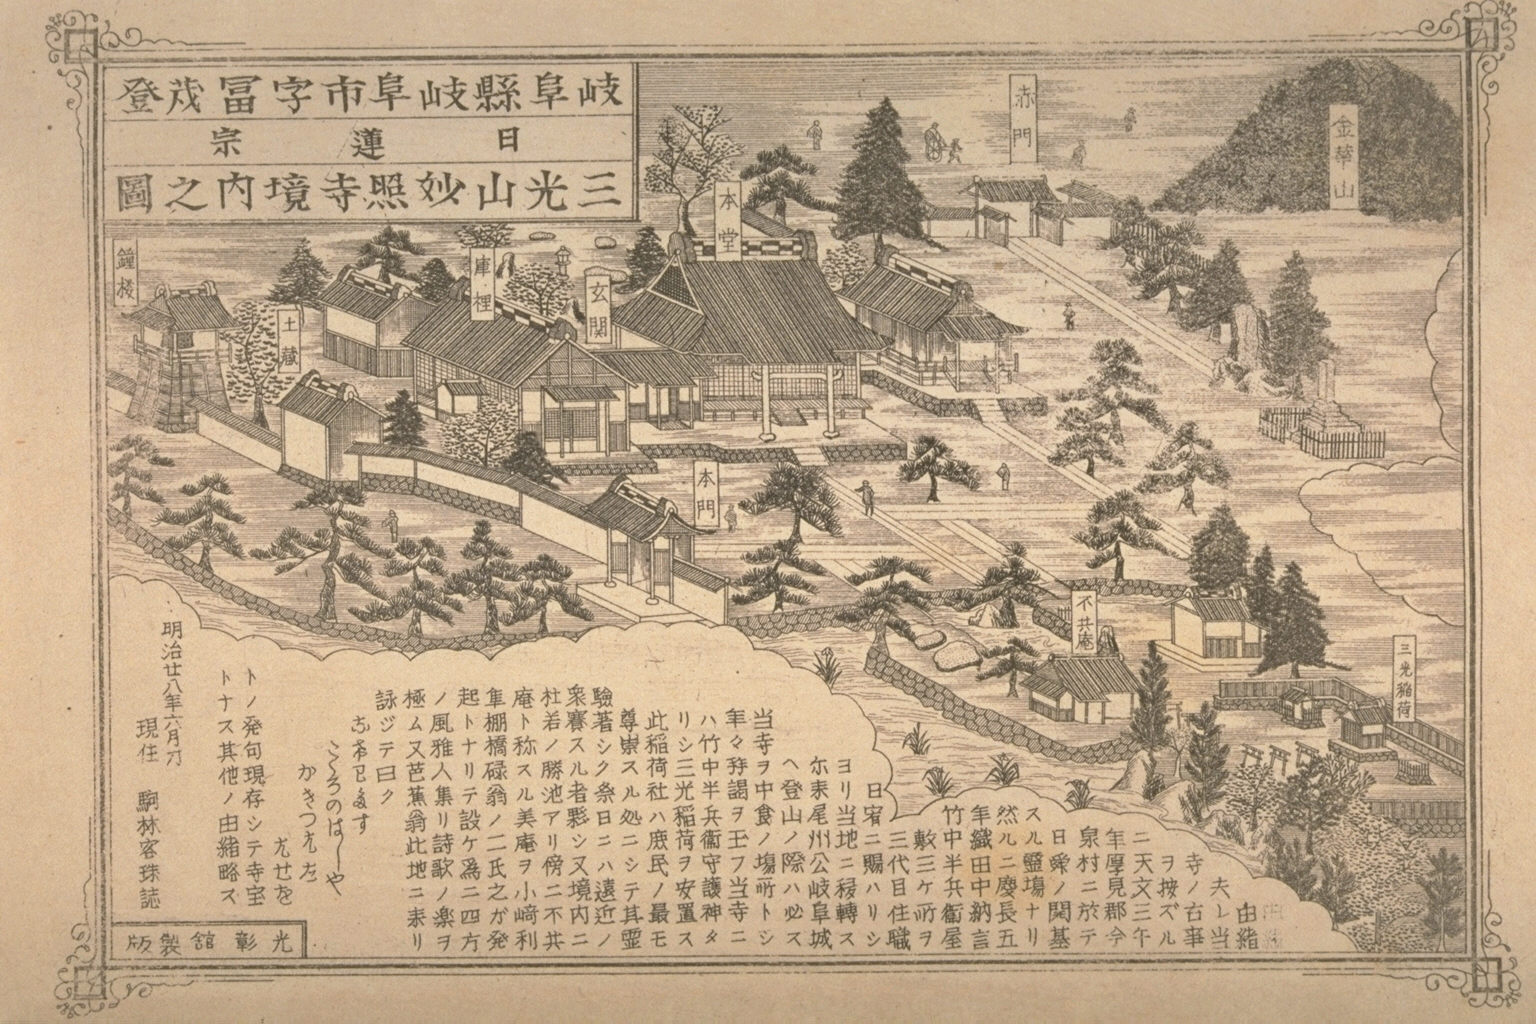 岐阜縣岐阜市字冨茂登
日蓮宗
三光山妙照寺境内之圖
赤門
金華山
本堂
庫裡
玄関
鐘楼
土蔵
本門
不共庵
三光稲荷
由緒
夫レ当
寺ノ古事
ヲ按ズル
ニ天文三午
年厚見郡今
泉村ニ於テ
日舜ノ開基
スル霊場ナリ
然ルニ慶長五
年織田中納言
竹中半兵衛屋
敷三ヶ所ヲ
三代目住職
日宥ニ賜ハリシ
ヨリ当地ニ移轉ス
尓来尾州公岐阜城
ヘ登山ノ際ハ必ス
当寺ヲ中食ノ場所トシ
年々拝謁ヲ玉フ当寺ニ
ハ竹中半兵衛守護神タ
リシ三光稲荷ヲ安置ス
此稲荷社ハ庶民ノ最モ
尊崇スル処ニシテ其霊
驗著シク祭日ニハ遠近ノ
衆賽スル者夥シ又境内ニ
杜若ノ勝池アリ傍ニ不共
庵ト称スル美庵ヲ小崎利
隼棚橋碌翁ノ二氏之が発
起トナリテ設ケ爲ニ四方
ノ風雅人集リ詩歌ノ楽ヲ
極ム又芭蕉翁此地ニ来リ
詠ジテ曰ク
こゝろのはしや
かきつ
トノ発句現存シテ寺宝
トナス其他ノ由緒略ス
明治廿八年六月
現住 駒林容珠誌
光彰舘製版